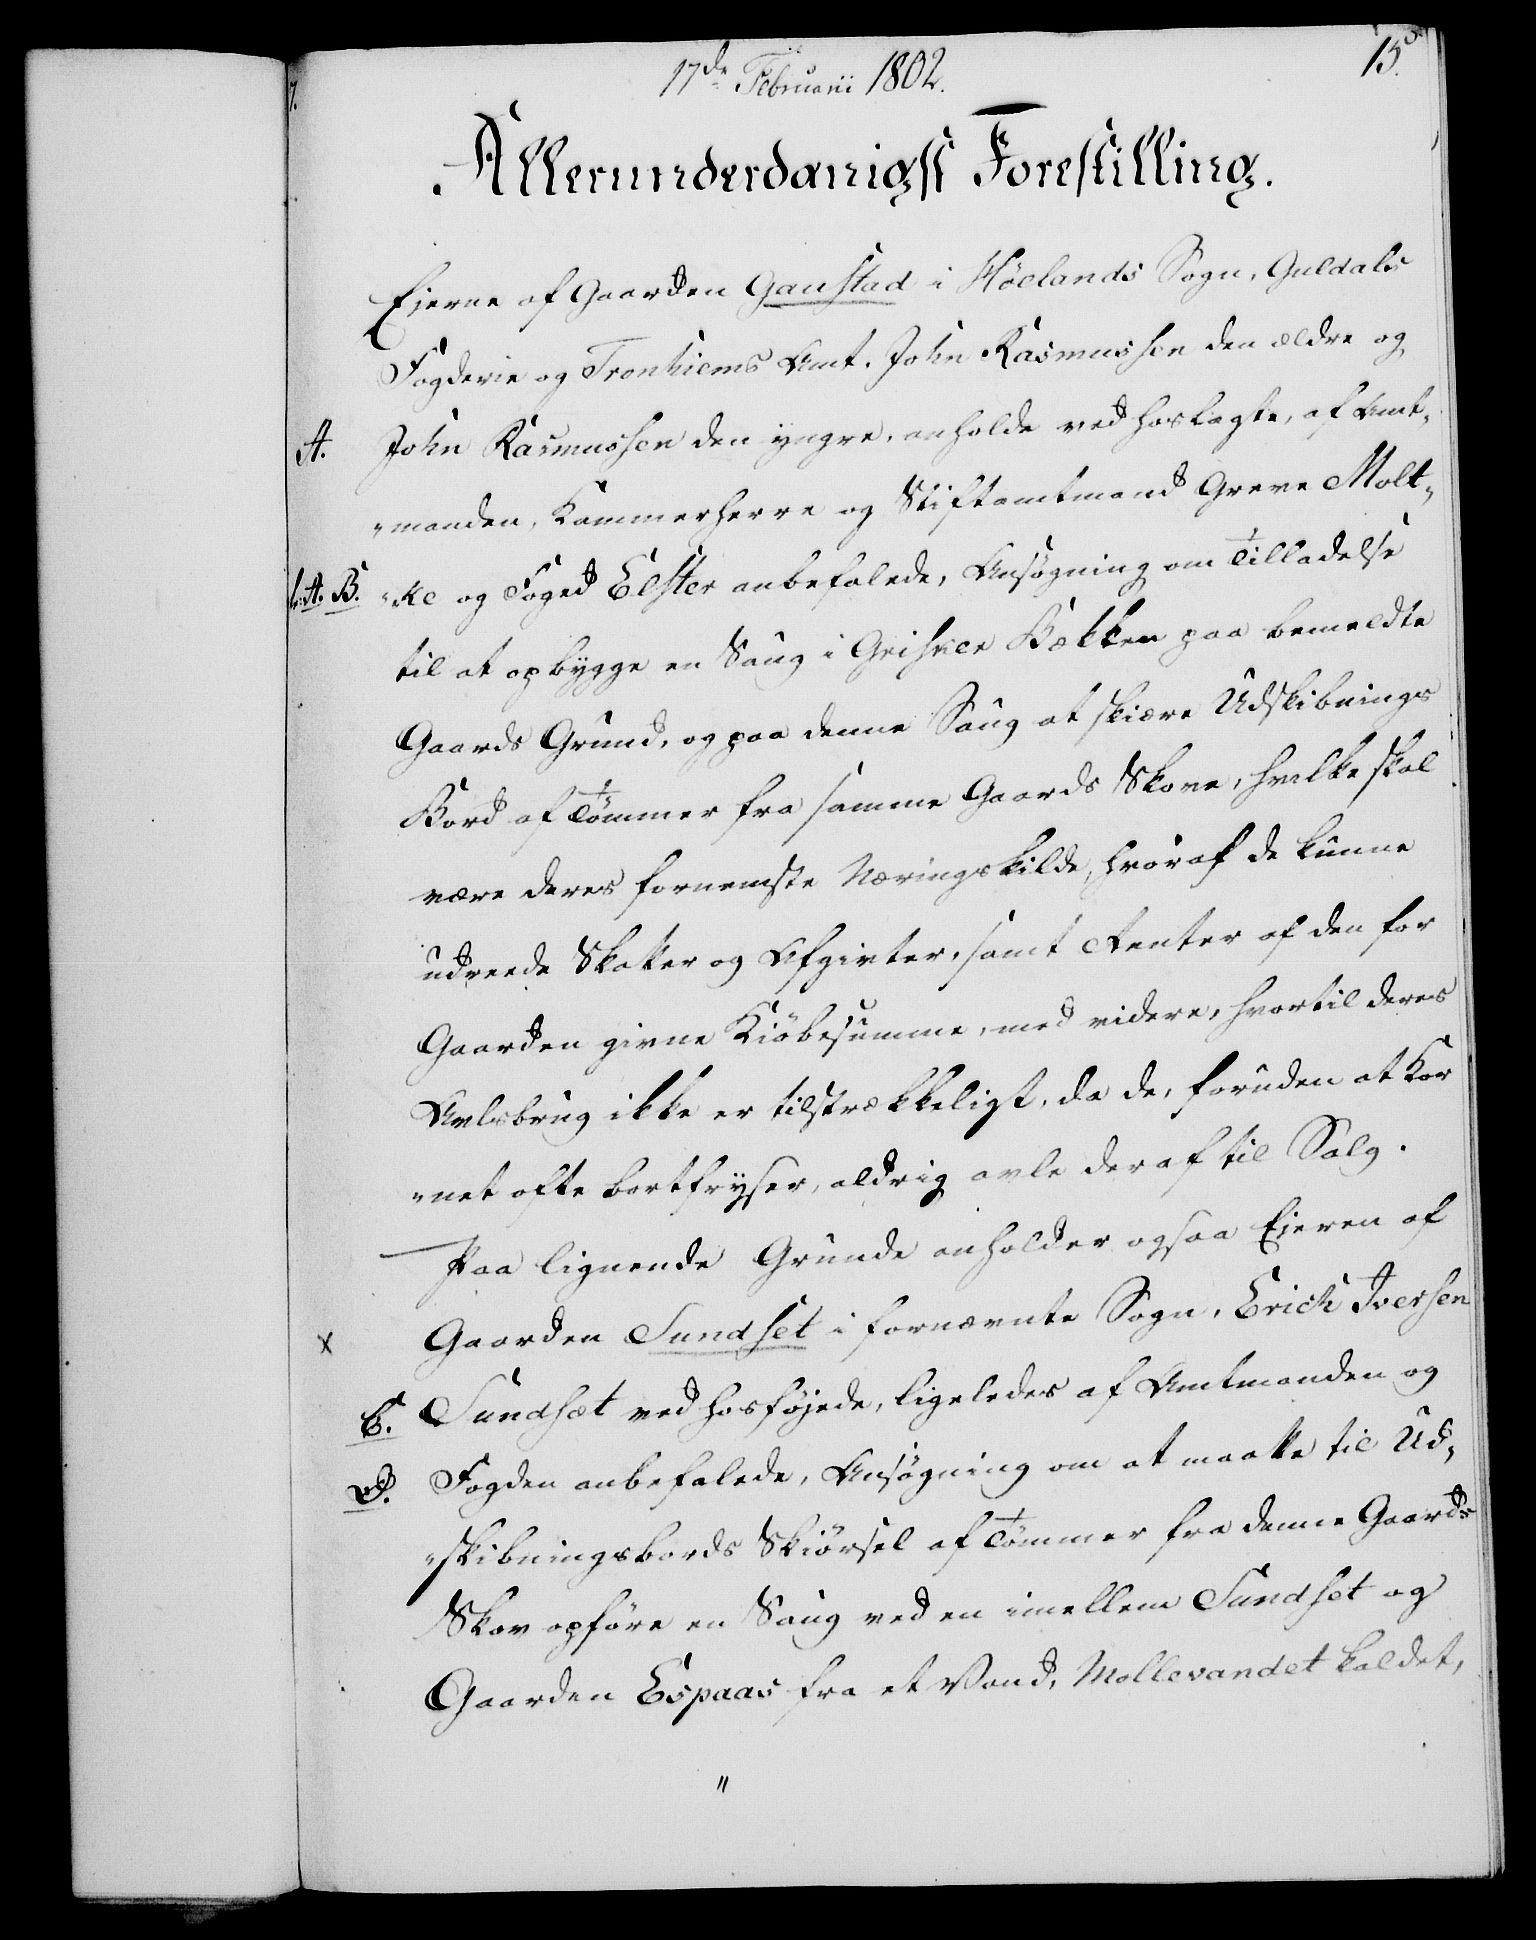 17de Februarii 1802.
15.
Allerunderdanigst Forestilling.
Ejerne af Gaarden Gaustad i Höelands Sogn, Guldals
Fogderie og Tronhiems Amt. John Rasmussen den ældre og
A. John Rasmussen den yngre, anholde ved hoslagte, af Amt-
"manden, Kammerherre og Stiftamtmand Greve Molt-
A. B. "ke og Foged Elster anbefalede, Ansøgning om Tilladelse
til at opbygge en Saug i Bækken paa bemeldte
Gaards Grund, og paa denne Saug at skiære Udskibnings
Bord af Tömmer fra samme Gaards Skove, hvilke skal
være deres fornemste Næringskilde, hvoraf de kunne
udreede Skatter og Afgivter, samt Renter af den for
Gaarden givne Kiöbesumme, med videre, hvortil deres
Avlsbrug ikke er tilstrækkeligt, da de, foruden at Kor
"net ofte bortfryser, aldrig avle deraf til Salg.
Paa lignende Grunde anholder ogsaa Ejeren af
x Gaarden Sundset i fornævnte Sogn, Erich Iversen
C. Sundsæt ved hosføjede, ligeledes af Amtmanden og
D. Fogden anbefalede, Ansøgning om at maatte til Ud-
"skibningsbords Skiörsel af Tömmer fra denne Gaards
Skov opföre en Saug ved en imellem Sundset og
Gaarden Espaas fra et Vand, Mollevandet kaldet,
"